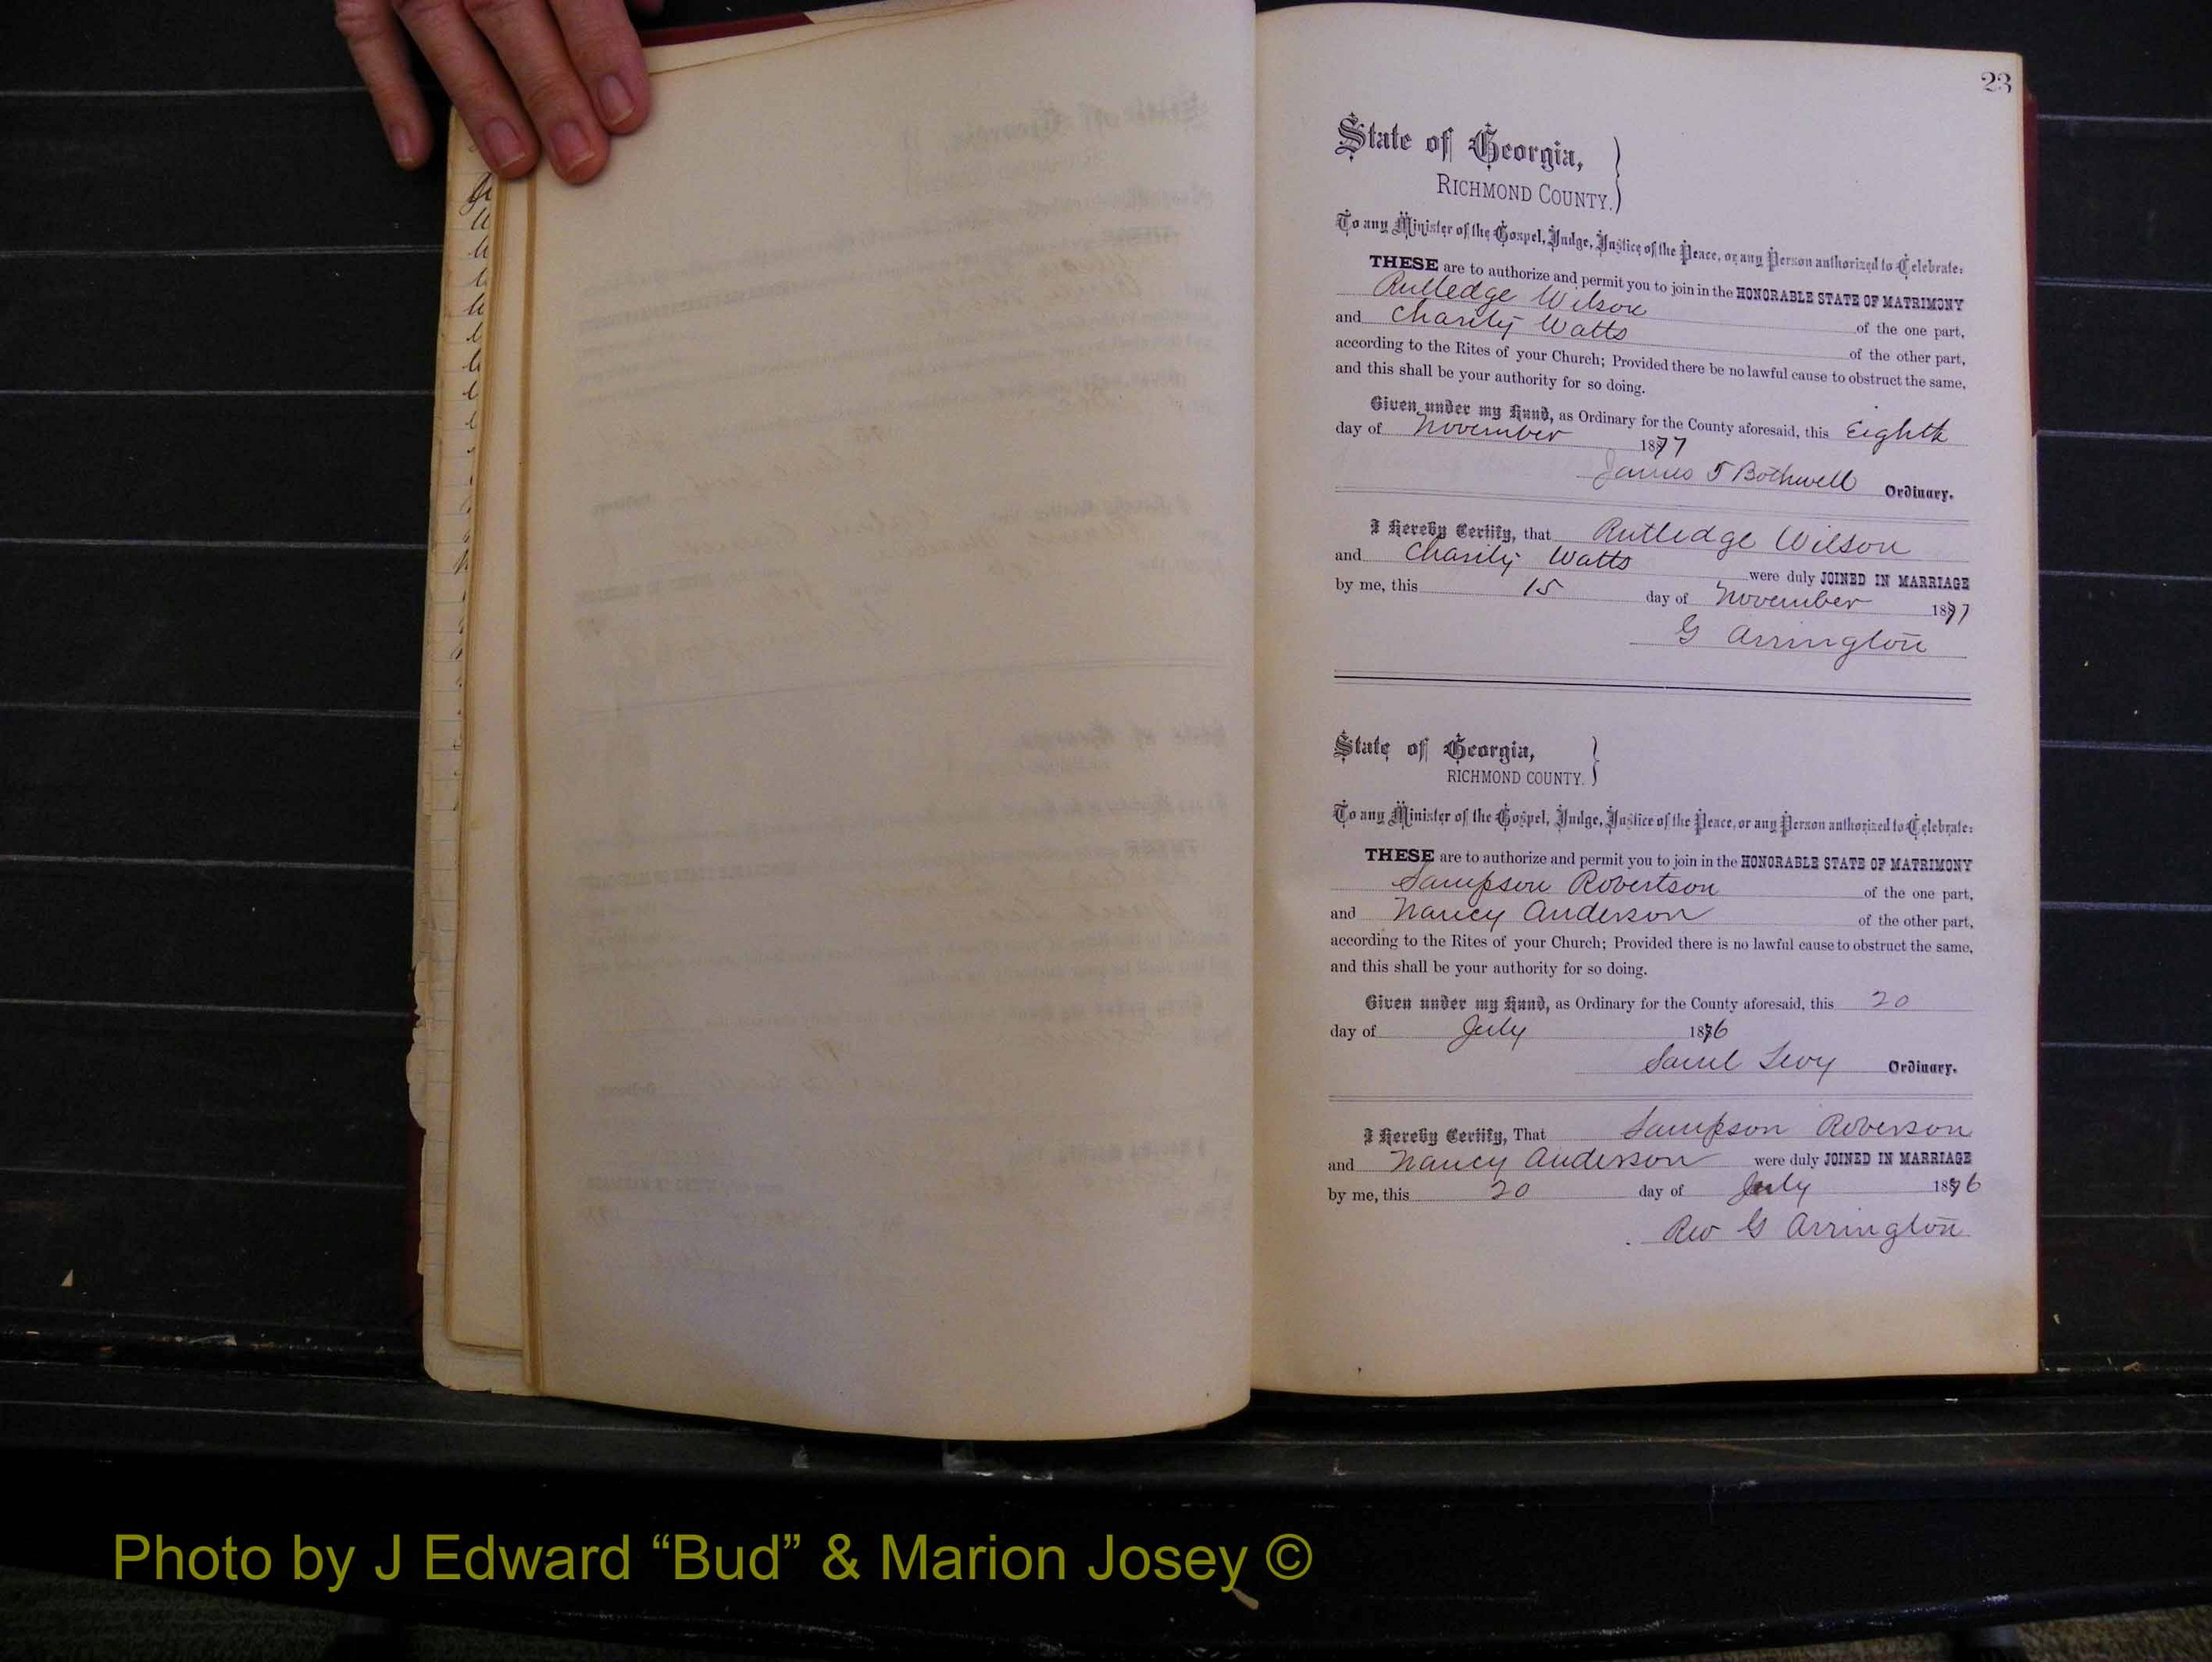 23
State of Georgia,
RICHMOND COUNTY.
To any Minister of the Gospel, Judge, Justice of the Peace, or any Person authorized to Celebrate:
THESE are to authorize and permit you to join in the HONORABLE STATE OF MATRIMONY
Rutledge Wilson of the one part,
and Charity Watts of the other part,
according to the Rites of your Church; Provided there be no lawful cause to obstruct the same,
and this shall be your authority for so doing.
Given under my Hand, as Ordinary for the County aforesaid, this Eighth
day of November 1877
James T Bothwell Ordinary.
I Hereby Certify, that Rutledge Wilson
and Charity Watts were duly JOINED IN MARRIAGE
by me, this 15 day of November 1877
G Arrington
State of Georgia,
RICHMOND COUNTY.
To any Minister of the Gospel, Judge, Justice of the Peace, or any Person authorized to Celebrate:
THESE are to authorize and permit you to join in the HONORABLE STATE OF MATRIMONY
Sampson Robertson of the one part,
and Nancy Anderson of the other part,
according to the Rites of your Church; Provided there is no lawful cause to obstruct the same,
and this shall be your authority for so doing.
Given under my Hand, as Ordinary for the County aforesaid, this 20
day of July 1876
Saml Levy Ordinary.
I Hereby Certify, That Sampson Roberson
and Nancy Anderson were duly JOINED IN MARRIAGE
by me, this 20 day of July 1876
Rev G Arrington
Photo by J Edward “Bud” & Marion Josey ©